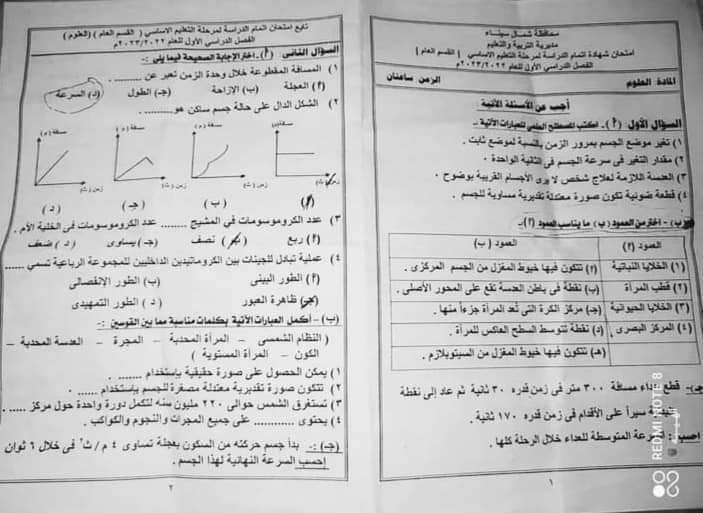 محافظة شمال سيناء
مديرية التربية والتعليم
امتحان شهادة اتمام الدراسة لمرحلة التعليم الاساسي ( القسم العام )
الفصل الدراسي الأول للعام ٢٠٢٣/٢٠٢٢م
المادة: العلوم
الزمن ساعتان
أجب عن الأسئلة الآتية
السؤال الأول (أ) - اكتب المصطلح العلمي للعبارات الآتية -
١) تغير موضع الجسم بمرور الزمن بالنسبة لموضع ثابت .
٢) مقدار التغير في سرعة الجسم في الثانية الواحدة .
٣) العدسة اللازمة لعلاج شخص لا يرى الأجسام القريبة بوضوح .
٤) قطعة ضوئية تكون صورة معتدلة تقديرية مساوية للجسم .
(ب) - اختر من العمود (ب) ما يناسب العمود (أ) :-
العمود (أ) العمود (ب)
(١) الخلايا النباتية (أ) تتكون فيها خيوط المغزل من الجسم المركزى .
(٢) قطب المرآة (ب) نقطة في باطن العدسة تقع على المحور الأصلى .
(٣) الخلايا الحيوانية (جـ) مركز الكرة التى تُعد المرآة جزءاً منها .
(٤) المركز البصرى (د) نقطة تتوسط السطح العاكس للمرآة .
(هـ) تتكون فيها خيوط المغزل من السيتوبلازم .
(جـ)- قطع عداء مسافة ٣٠٠ متر فى زمن قدره ٣٠ ثانية ثم عاد إلى نقطة
سيراً على الأقدام فى زمن قدره ١٧٠ ثانية .
احسب : السرعة المتوسطة للعداء خلال الرحلة كلها .
١
تابع امتحان اتمام الدراسة لمرحلة التعليم الاساسي ( القسم العام ) (العلوم )
الفصل الدراسي الأول للعام ٢٠٢٣/٢٠٢٢م
السؤال الثانى (أ) - اختر الإجابة الصحيحة فيما يلى :-
١) المسافة المقطوعة خلال وحدة الزمن تعبر عن ........
(أ) العجلة (ب) الإزاحة (جـ) الطول (د) السرعة
٢) الشكل الدال على حالة جسم ساكن هو.........
مسافة ( م ) مسافة ( م ) مسافة ( م ) مسافة ( م )
زمن ( ث ) زمن ( ث ) زمن ( ث ) زمن ( ث )
(أ) (ب) (جـ) (د)
٣) عدد الكروموسومات في المشيج ........ عدد الكروموسومات فى الخلية الأم .
(أ) ربع (ب) نصف (جـ) يساوى (د) ضعف
٤) عملية تبادل للجينات بين الكروماتيدين الداخليين للمجموعة الرباعية تسمي ......
(أ) الطور البينى (ب) الطور الانفصالى
(جـ) ظاهرة العبور (د) الطور التمهيدى
(ب) - أكمل العبارات الآتية بكلمات مناسبة مما بين القوسين :-
( النظام الشمسى – المرآة المحدبة – المجرة – العدسة المحدبة –
الكون – المرآة المستوية )
١) يمكن الحصول على صورة حقيقية بإستخدام ........
٢) تتكون صورة تقديرية معتدلة مصغرة للجسم بإستخدام ......
٣) تستغرق الشمس حوالى ٢٢٠ مليون سنه لتكمل دورة واحدة حول مركز .....
٤) يحتوى ............ على جميع المجرات والنجوم والكواكب .
(جـ) :- بدأ جسم حركته من السكون بعجلة تساوى ٤ م/ث٢ فى خلال ٦ ثوان
إحسب السرعة النهائية لهذا الجسم .
٢
REDMI NOTE 8